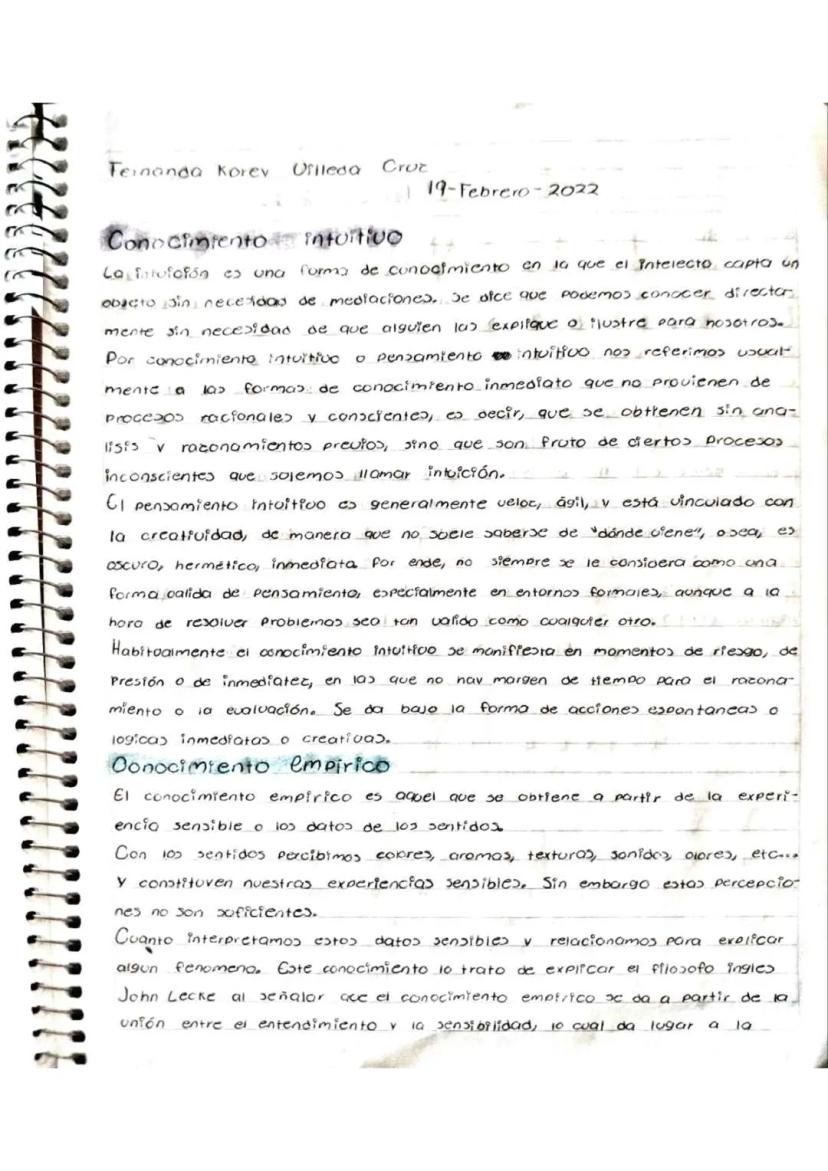 Fernanda Korey Villeda Cruz
19-Febrero-2022
Conocimiento intuitivo
La intuición es una forma de conocimiento en la que el intelecto capta un
objeto sin necesidad de mediaciones. Se dice que podemos conocer directa-
mente sin necesidad de que alguien las explique o ilustre para nosotros.
Por conocimiento intuitivo o pensamiento intuitivo nos referimos usual-
mente a las formas de conocimiento inmediato que no provienen de
procesos racionales y conscientes, es decir, que se obtienen sin ana-
lisis y razonamientos previos, sino que son fruto de ciertos procesos
inconscientes que solemos llamar intuición.
El pensamiento intuitivo es generalmente veloz, ágil, y está vinculado con
la creatividad, de manera que no suele saberse de "dónde viene", osea, es
oscuro, hermético, inmediata. Por ende, no siempre se le considera como una
forma valida de pensamiento, especialmente en entornos formales, aunque a la
hora de resolver problemas sea tan valido como cualquier otro.
Habitualmente el conocimiento intuitivo se manifiesta en momentos de riesgo, de
presión o de inmediatez, en las que no hay margen de tiempo para el razona-
miento o la evaluación. Se da bajo la forma de acciones espontaneas o
logicas inmediatas o creativas.
Conocimiento Empírico
El conocimiento empírico es aquel que se obtiene a partir de la experi-
encia sensible o los datos de los sentidos.
Con los sentidos percibimos colores, aromas, texturas, sonidos, olores, etc...
y constituyen nuestras experiencias sensibles. Sin embargo estas percepcio-
nes no son suficientes.
Cuanto interpretamos estos datos sensibles y relacionamos para explicar
algun fenomeno. Este conocimiento lo trato de explicar el filosofo ingles
John Locke al señalar que el conocimiento empírico se da a partir de la
unión entre el entendimiento y la sensibilidad, lo cual da lugar a la